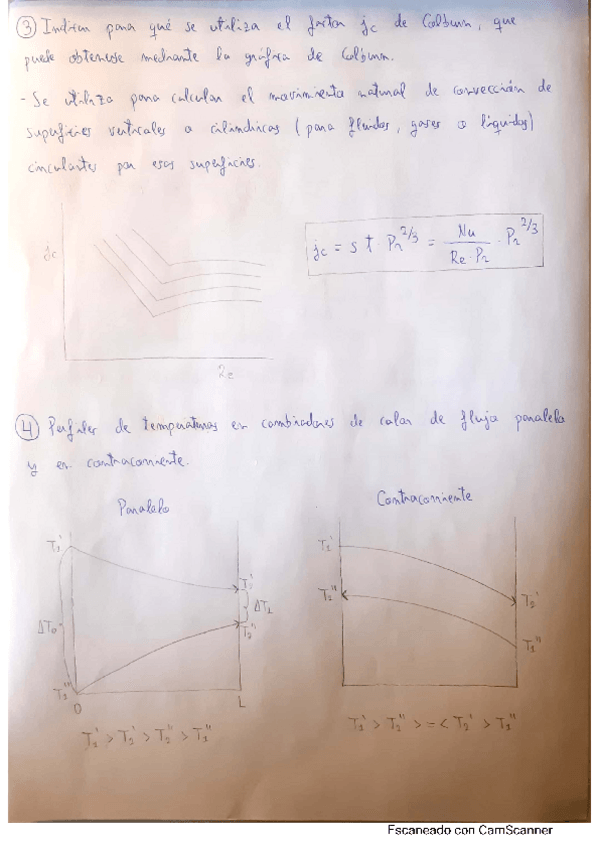 ③ Indican para qué se utiliza el factor jc de Colburn, que
puede obtenerse mediante la gráfica de Colburn.
- Se utiliza para calcular el movimiento natural de convección de
superficies verticales o cilíndricas (para fluidos, gases o líquidos)
circulantes por esas superficies.
jc
jc = St · Pr^2/3 = Nu / Re · Pr · Pr^2/3
Re
④ Perfiles de temperaturas en cambiadores de calor de flujo paralelo
y en contracorriente.
Paralelo
Contracorriente
T1'
T1'
T2'
T2''
T2'
ΔT0
ΔT1
T2''
T1''
T1''
0
L
T1' > T2' > T2'' > T1''
T1' > T2'' > = < T2' > T1''
Escaneado con CamScanner